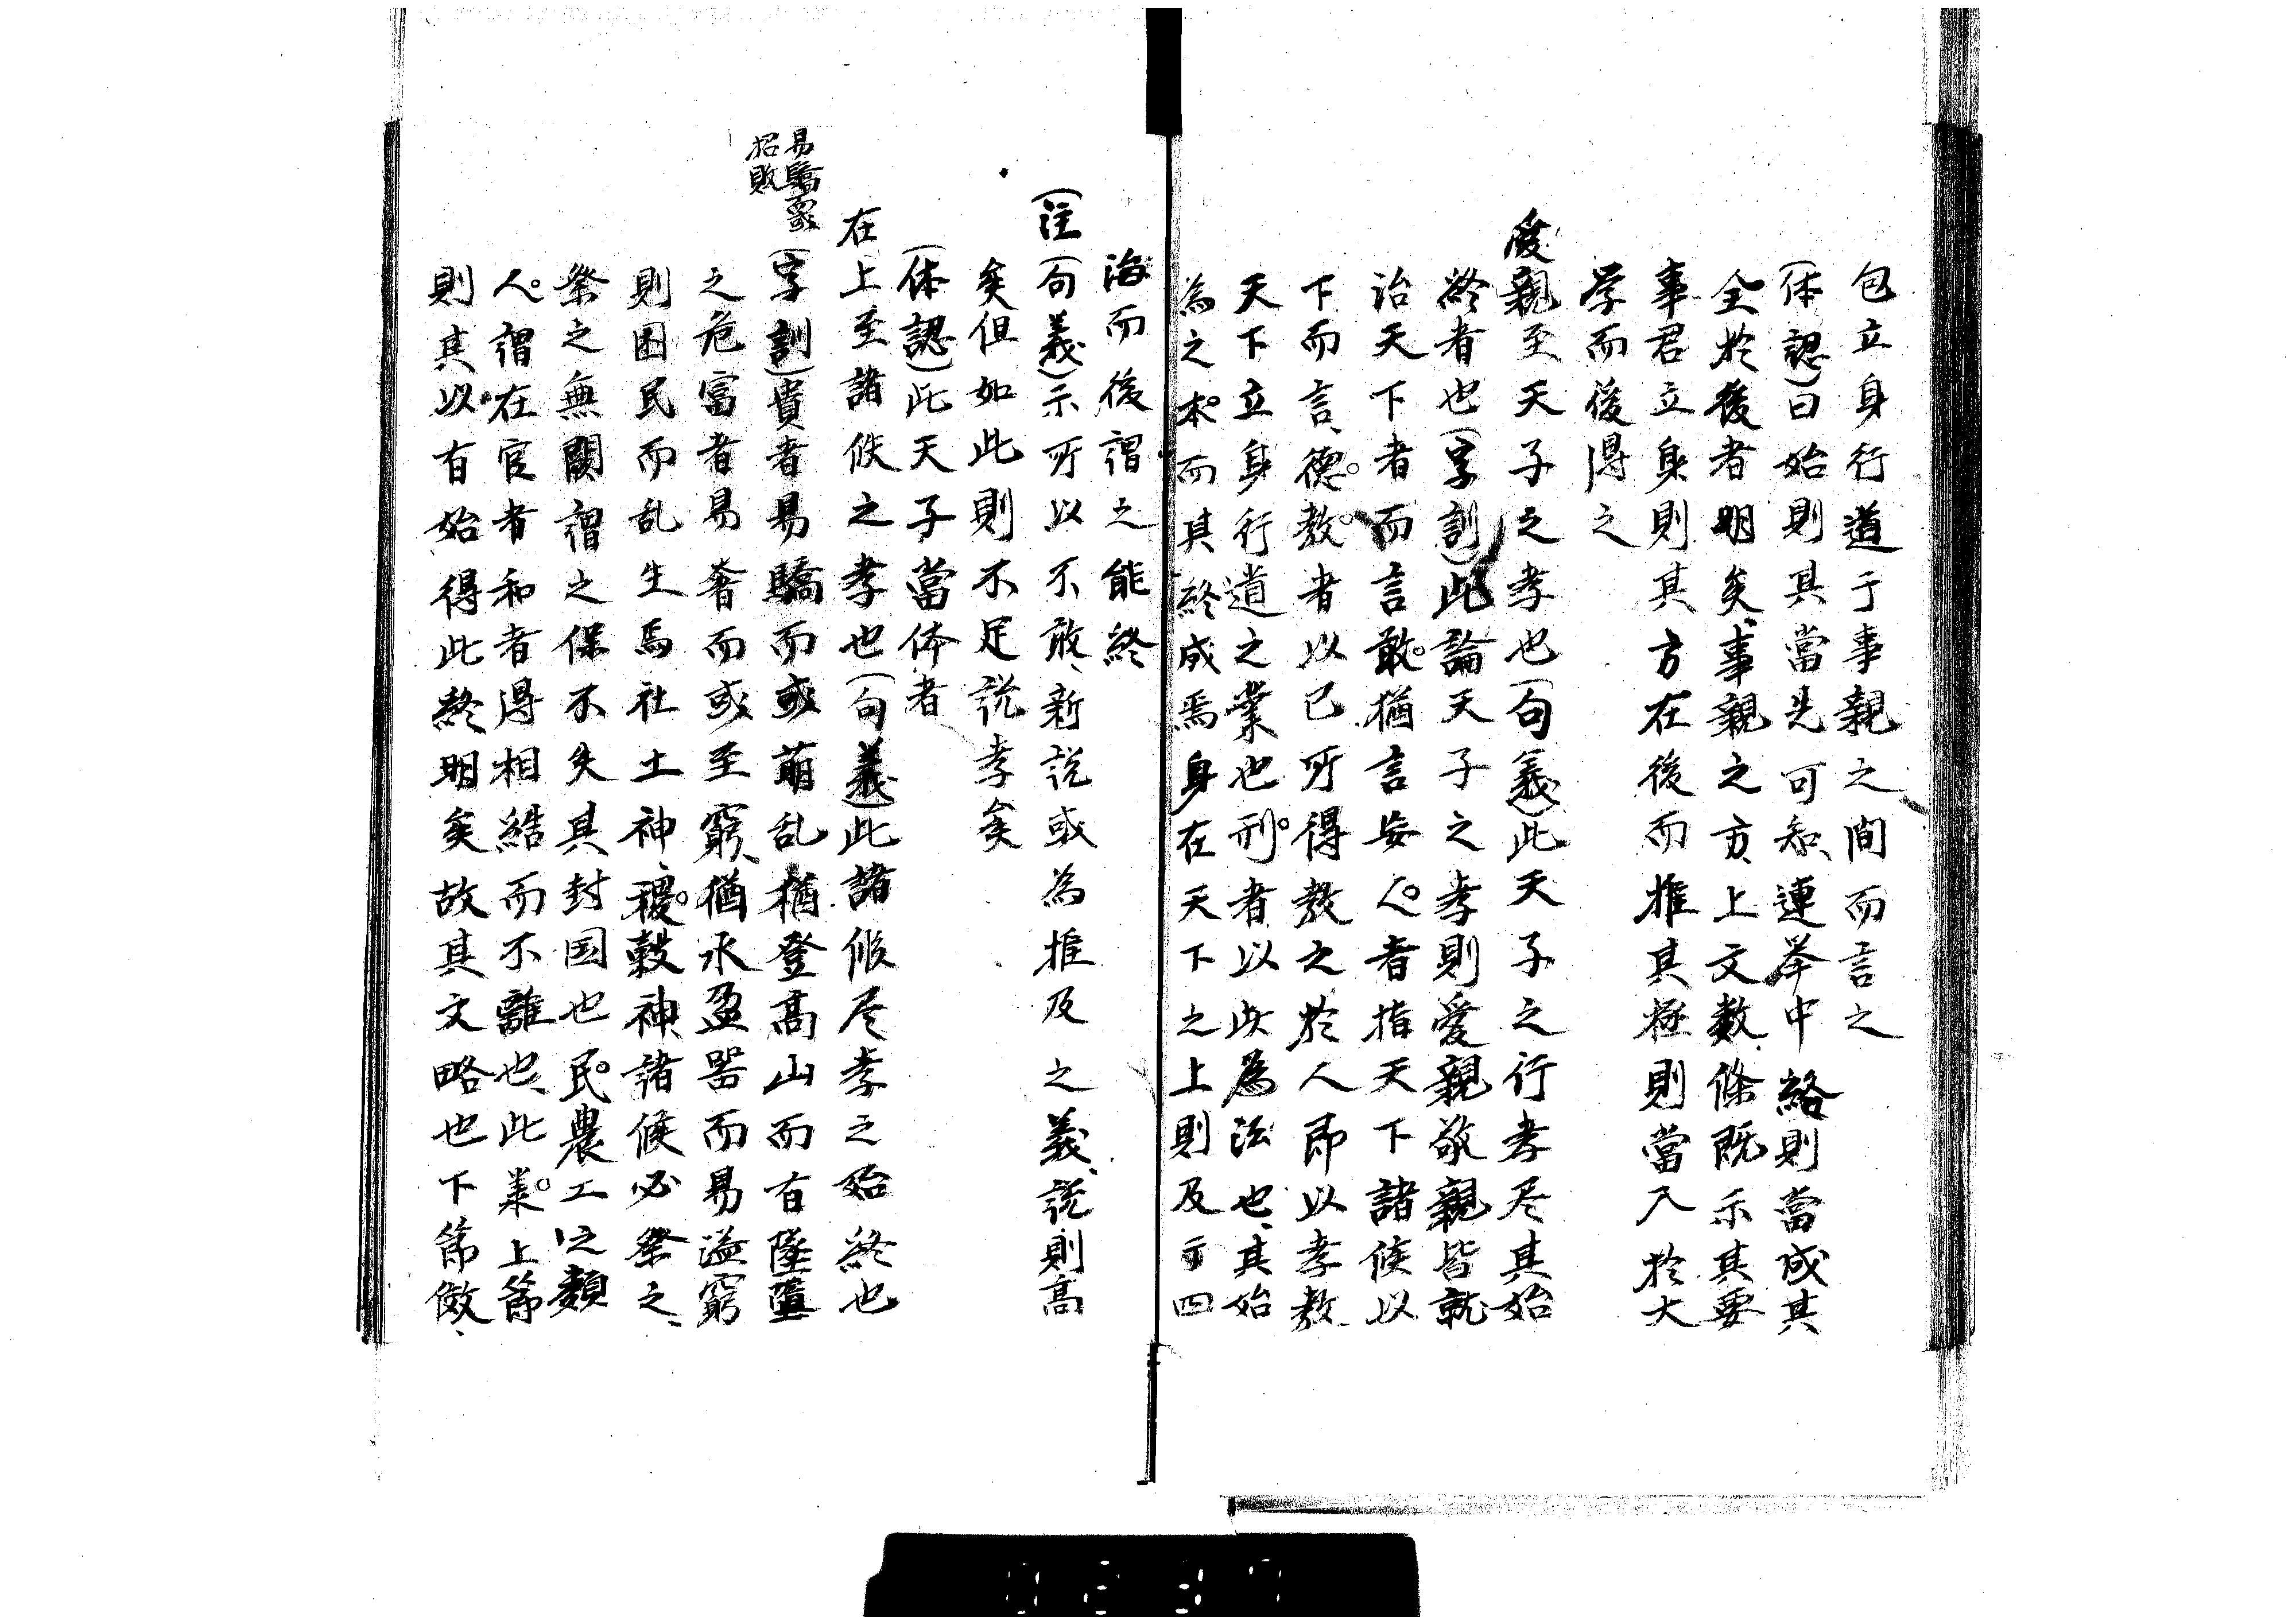 包立身行道于事親之間而言之
(体認)曰始則其當先可知連挙中終則當成其
全於後者明矣事親之方上文数條既示其要
事君立身則其方在後而推其極則當入於大
学而後得之
愛親至天子之孝也(句義)此天子之行孝尽其始
終者也(字訓)此論天子之孝則愛親敬親皆就
治天下者而言敢猶言安人者指天下諸侯以
下而言德教者以已所得教之於人即以孝教
天下立身行道之業也刑者以此為法也其始
為之本而其終成焉身在天下之上則及于四
海而後謂之能終
(注)(句義)示所以不敢新説或為推及之義説則高
矣但如此則不足説孝矣
(体認)此天子當体者
在上至諸侯之孝也(句義)此諸侯尽孝之始終也
易驕
招敗
(字訓)貴者易驕而或萌乱猶登高山而有墜墮
之危富者易奢而或至窮猶水盈器而易溢窮
則困民而乱生焉社土神稷穀神諸侯必祭之
祭之無闕謂之保不失其封国也民農工之類
人謂在官者和者得相結而不離也此業上節
則其以有始得此終明矣故其文略也下節倣